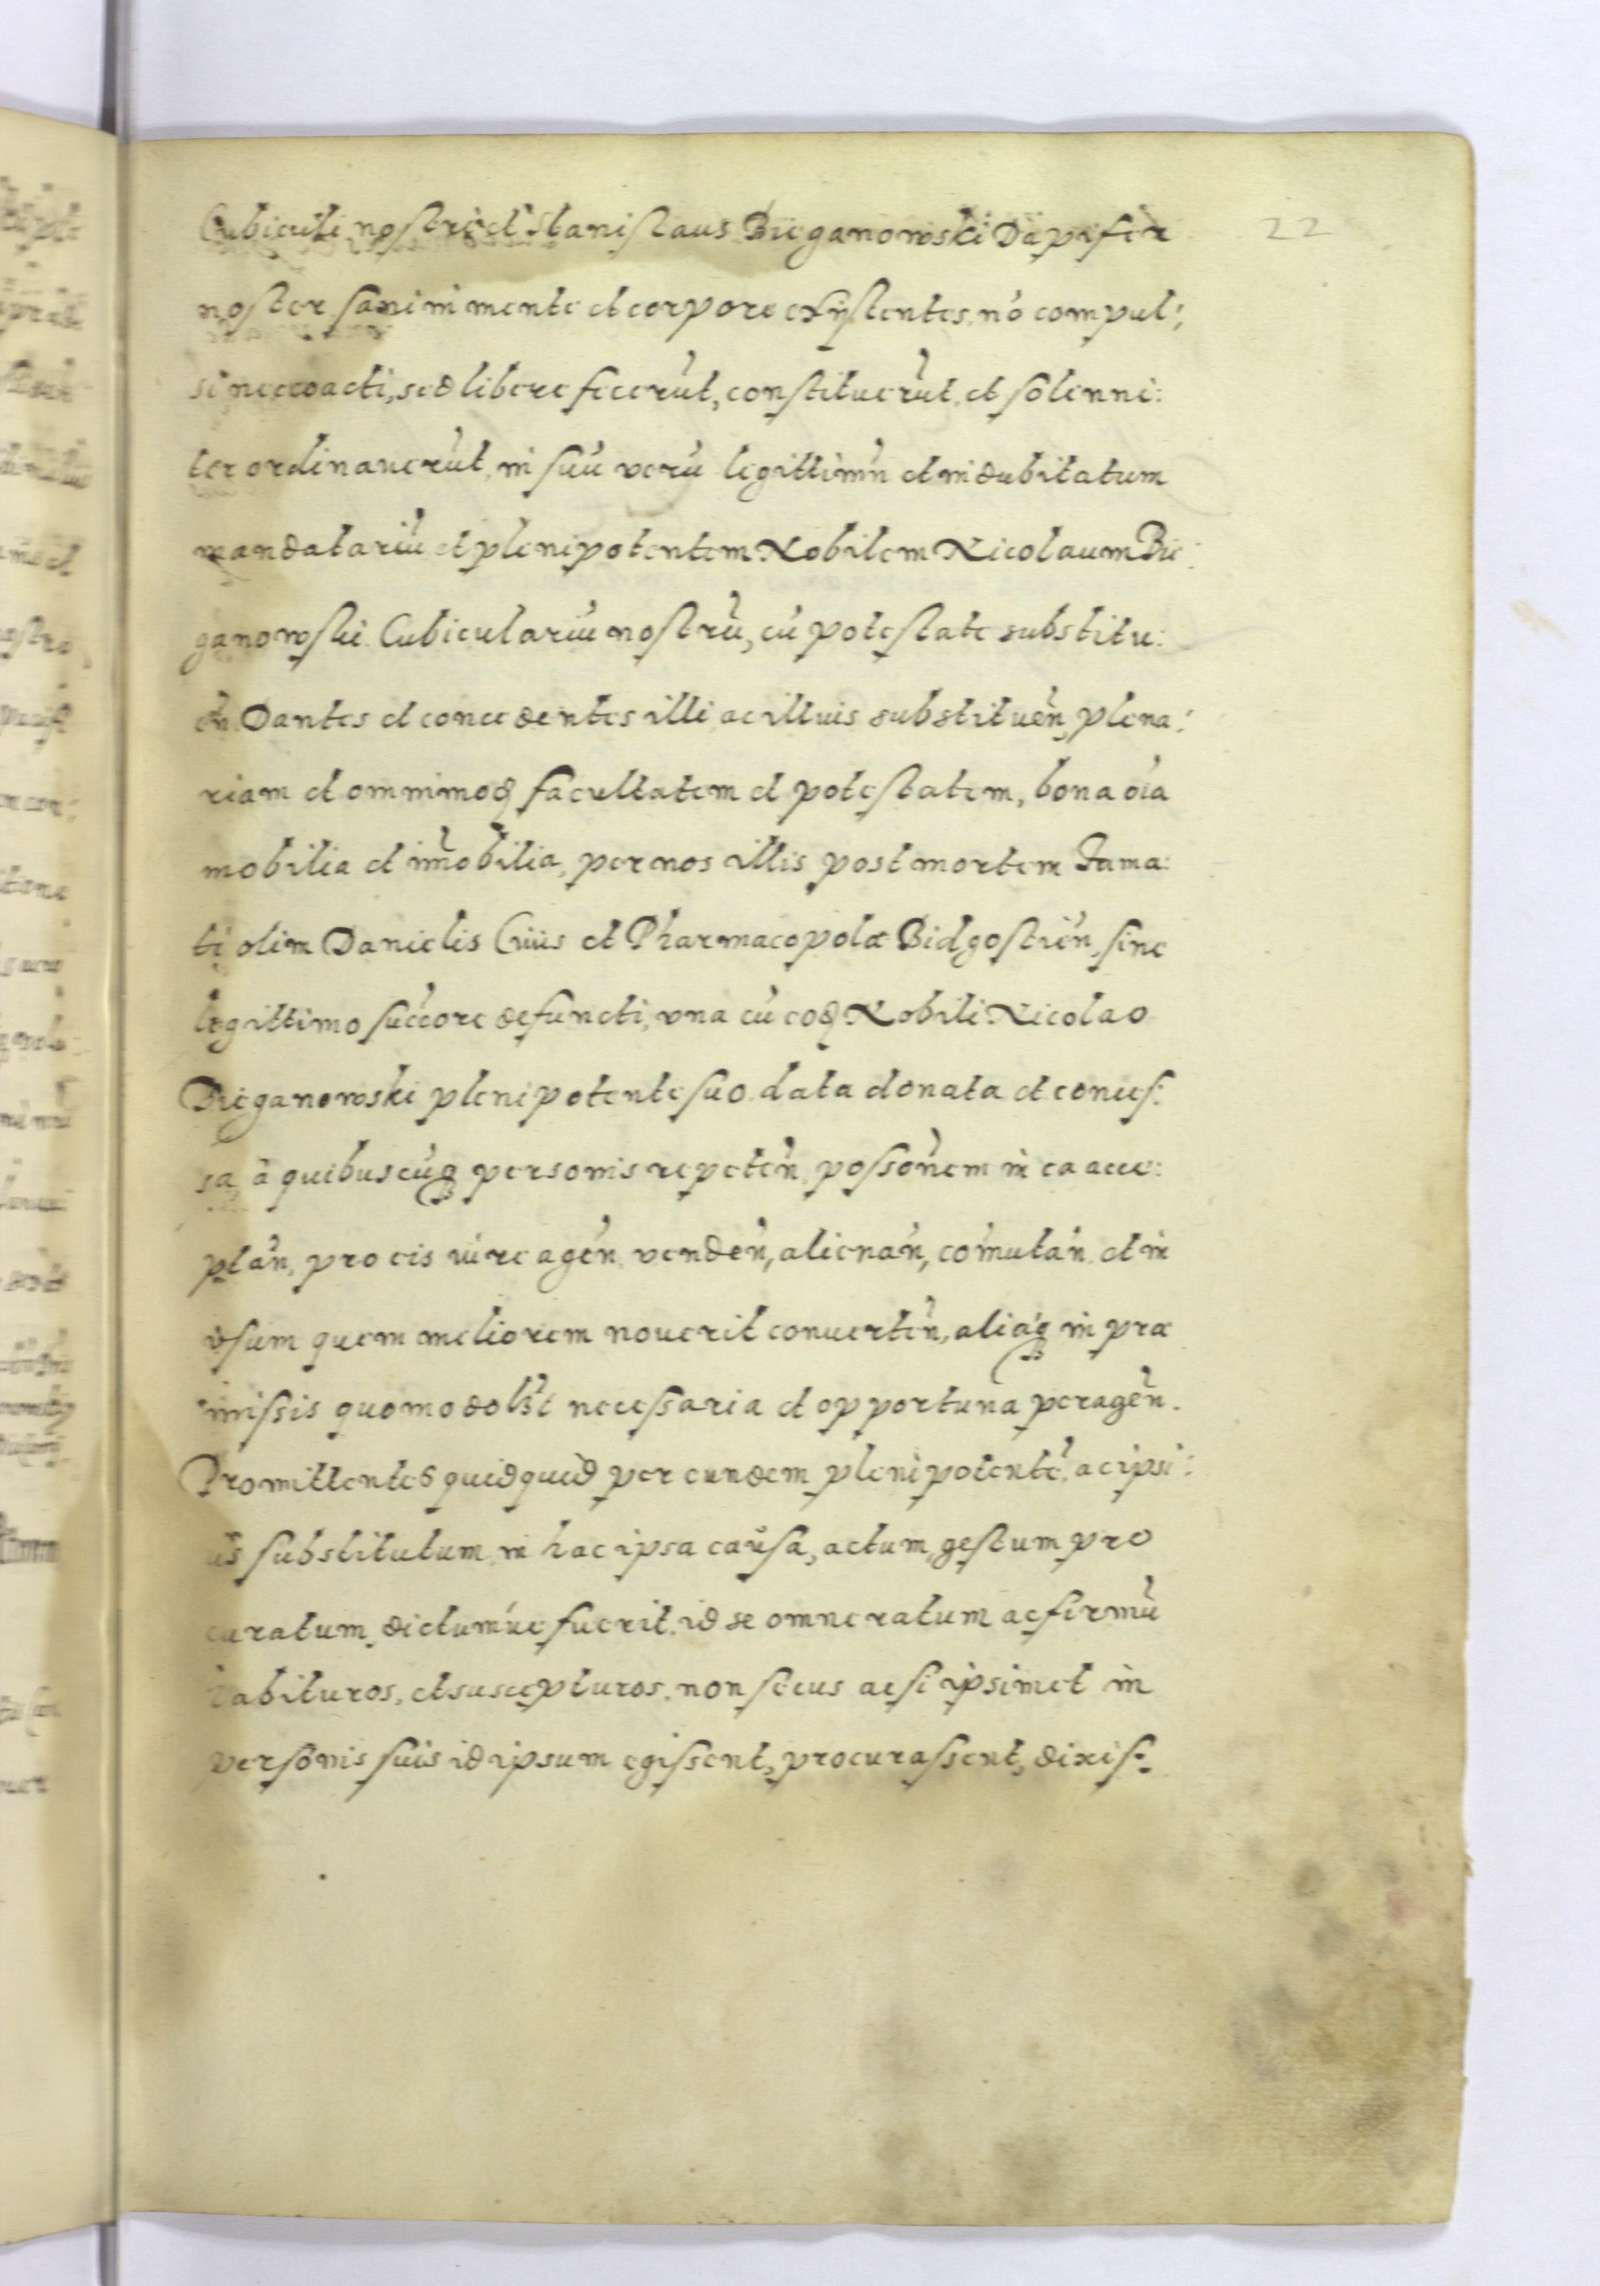 Cubiculi nostri et Stanislaus Bieganowski Dapifer 22
noster sani in mente et corpore exystentes, nō compul:
si, nec coacti, sed libere fecerūt, constituerūt, et solenni:
ter ordinauerūt, in suū verū legittimū et indubitatum
mandatariū et plenipotentem Nobilem Nicolaum Bie:
ganowski Cubiculariū nostrū, cū potestate substitu:
eñ. Dantes et concedentes illi, ac illius substitueñ, plena:
riam et omnimod facultatem et potestatem, bona oīa
mobilia et im̄obilia, per nos illis post mortem Fama:
ti olim Danielis Ciuis et Pharmacopolæ Bidgostieñ, sine
legittimo succore defuncti, vna cū eod Nobili Nicolao
Bieganowski plenipotente suo data donata et conces:
sa, à quibuscūq personis repeteñ, possoñem in ea acce:
ptañ, pro eis iure ageñ, vendeñ, alienañ, com̄utañ, et in
vsum quem meliorem nouerit conuerteñ, aliaq in præ
missis quomodolibet necessaria et opportuna perageñ.
Promittentes quidquid per eundem plenipotentē, ac ipsi:
us substitutum, in hac ipsa causa, actum, gestum, pro
curatum, dictumue fuerit, id se omne ratum ac firmū
habituros, et suscepturos, non secus ac si ipsimet in
personis suis id ipsum egissent, procurassent, dixis: